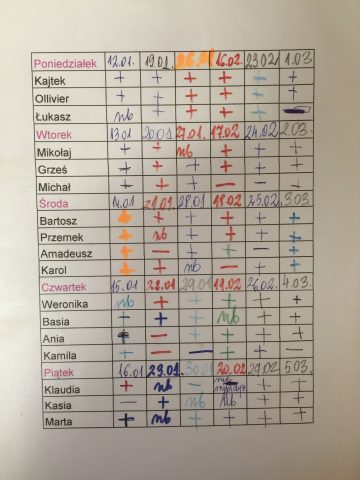 Poniedziałek 12.01. 19.01. 26.01 16.02 23.02 1.03
Kajtek + + + + + +
Ollivier + + + + + +
Łukasz nb + + + + —
Wtorek 13.01 20.01 27.01. 17.02 24.02 2.03.
Mikołaj + + nb + + +
Grześ + + + + + +
Michał + + + — — +
Środa 14.01 21.01. 28.01 18.02 25.02 3.03
Bartosz + + + + + +
Przemek + nb + + + +
Amadeusz + — + + — +
Karol + + nb — + +
Czwartek 15.01 22.01 29.01 19.02 26.02 4.03.
Weronika nb + + + + +
Basia — + + nb + +
Ania + — + + + +
Kamila + — — + + —
Piątek 16.01 23.01. 30.01 20.02 27.02 5.03.
Klaudia + nb — + +
Kasia — + nb nb + +
Marta + nb + + + +